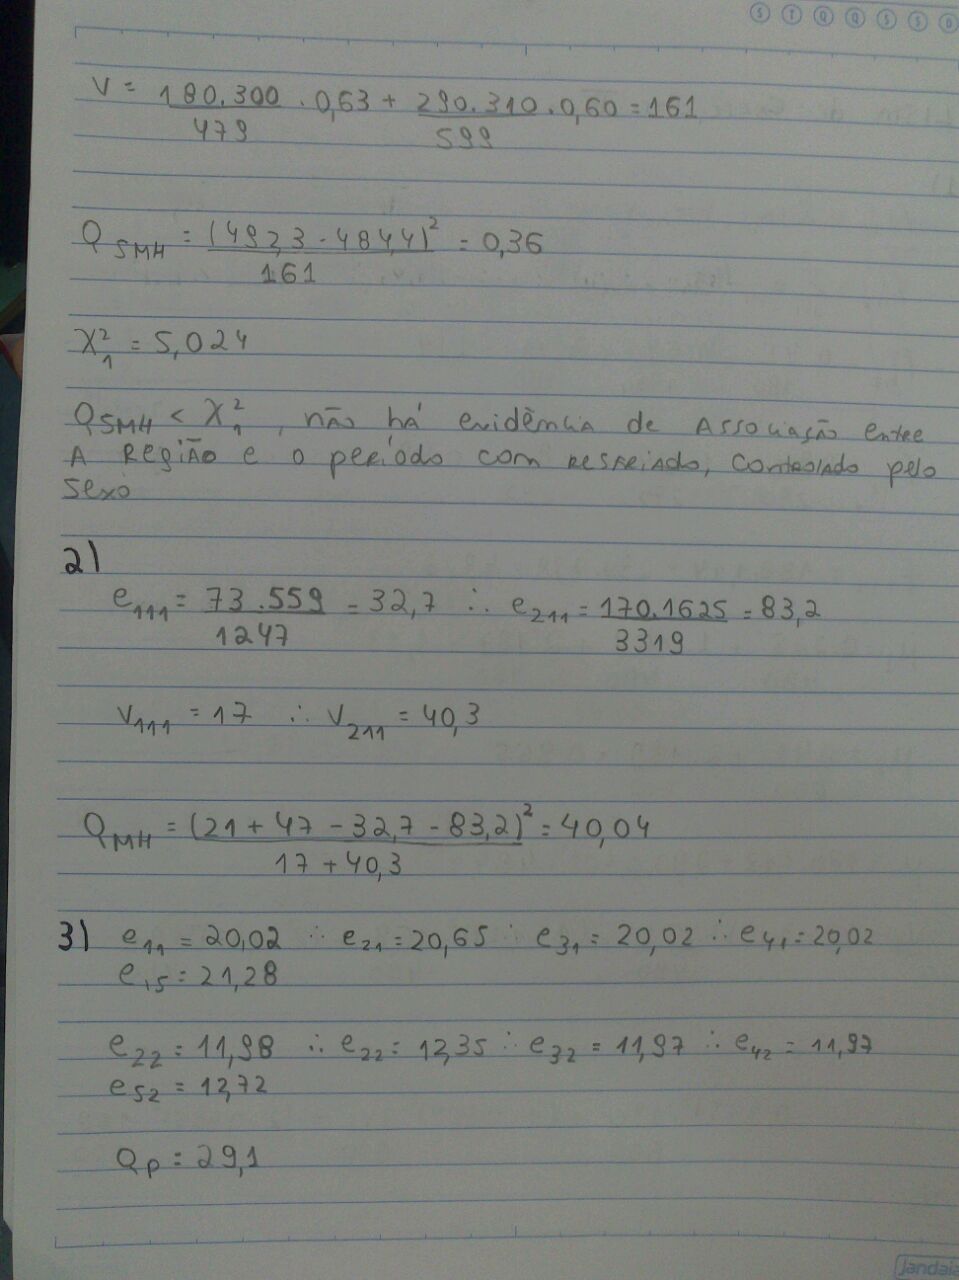 S T Q Q S S D
V = 180.300/479 . 0,63 + 290.310/599 . 0,60 = 161
Q SMH = (492,3 - 484,4)²/161 = 0,36
X²₁ = 5,024
QSMH < X²₁, não há evidência de Associação entre
A Região e o período com resfriado, controlado pelo
sexo
2)
e₁₁₁ = 73.559/1247 = 32,7 ∴ e₂₁₁ = 170.1625/3319 = 83,2
V₁₁₁ = 17 ∴ V₂₁₁ = 40,3
QMH = (21 + 47 - 32,7 - 83,2)²/17 + 40,3 = 40,04
3) e₁₁ = 20,02 ∴ e₂₁ = 20,65 ∴ e₃₁ = 20,02 ∴ e₄₁ = 20,02
e₁₅ = 21,28
e₂₂ = 11,98 ∴ e₂₂ = 12,35 ∴ e₃₂ = 11,97 ∴ e₄₂ = 11,97
e₅₂ = 12,72
Qp = 29,1
jandaia